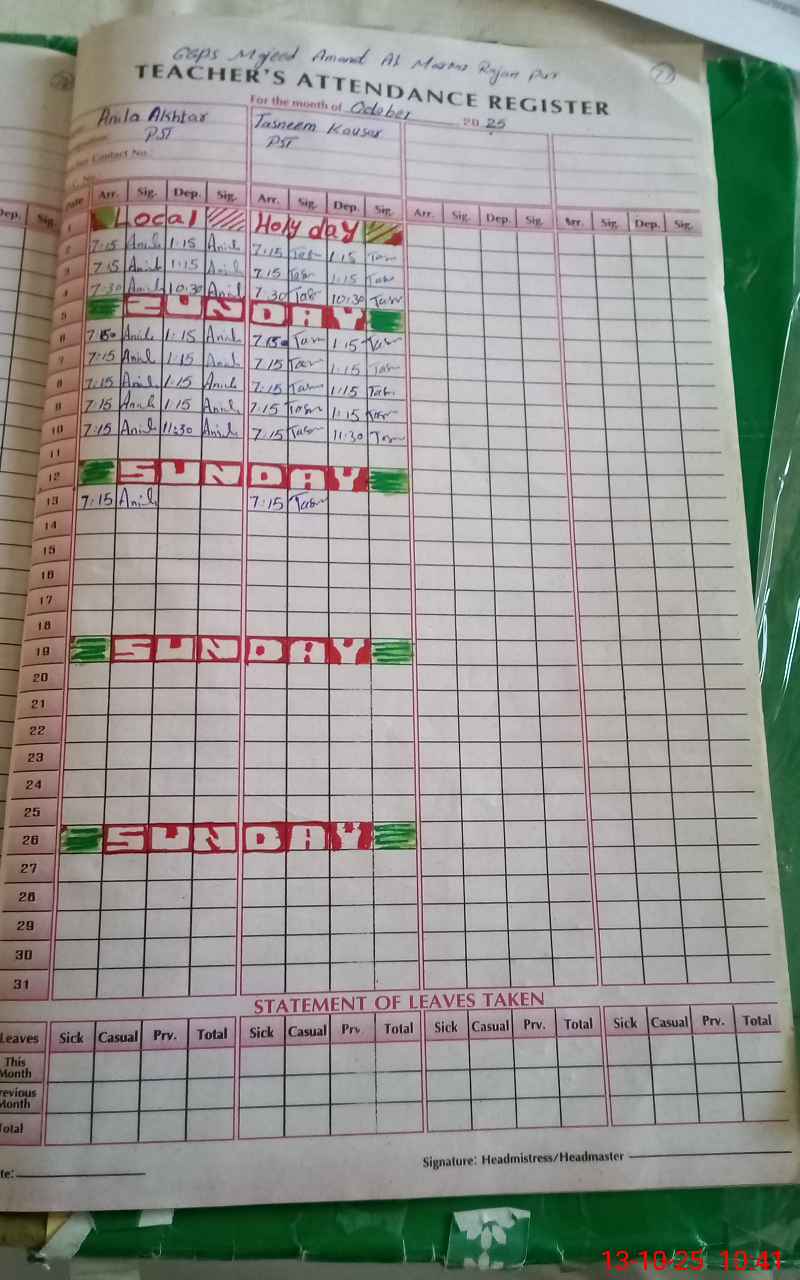 GGPS Majeed Amanat Ali Mazari Rajan Pur
TEACHER'S ATTENDANCE REGISTER
For the month of October 2025
Anila Akhtar Tasneem Kousar
PST PST
Contact No.
Arr. Sig. Dep. Sig. Arr. Sig. Dep. Sig. Arr. Sig. Dep. Sig. Arr. Sig. Dep. Sig.
1 Local Holy day
2 7:15 Anila 1:15 Anila 7:15 Tasn 1:15 Tasn
3 7:15 Anila 1:15 Anila 7:15 Tasn 1:15 Tasn
4 7:30 Anila 10:30 Anila 7:30 Tasn 10:30 Tasn
5 SUNDAY
6 7:15 Anila 1:15 Anila 7:15 Tasn 1:15 Tasn
7 7:15 Anila 1:15 Anila 7:15 Tasn 1:15 Tasn
8 7:15 Anila 1:15 Anila 7:15 Tasn 1:15 Tasn
9 7:15 Anila 1:15 Anila 7:15 Tasn 1:15 Tasn
10 7:15 Anila 11:30 Anila 7:15 Tasn 11:30 Tasn
11
12 SUNDAY
13 7:15 Anila 7:15 Tasn
14
15
16
17
18
19 SUNDAY
20
21
22
23
24
25
26 SUNDAY
27
28
29
30
31
STATEMENT OF LEAVES TAKEN
Leaves Sick Casual Prv. Total Sick Casual Prv. Total Sick Casual Prv. Total Sick Casual Prv. Total
This Month
Previous Month
Total
Signature: Headmistress/Headmaster
13-10-25 10:41